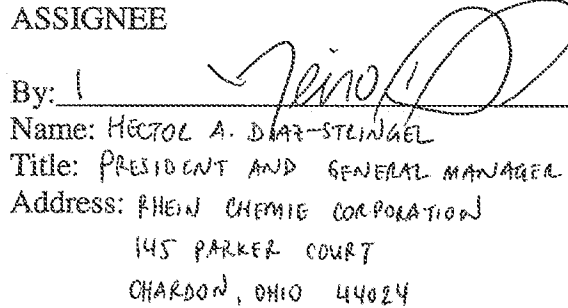 ASSIGNEE
By:
Name: HECTOR A. DIAZ-STRINGEL
Title: PRESIDENT AND GENERAL MANAGER
Address: RHEIN CHEMIE CORPORATION
145 PARKER COURT
CHARDON, OHIO 44024